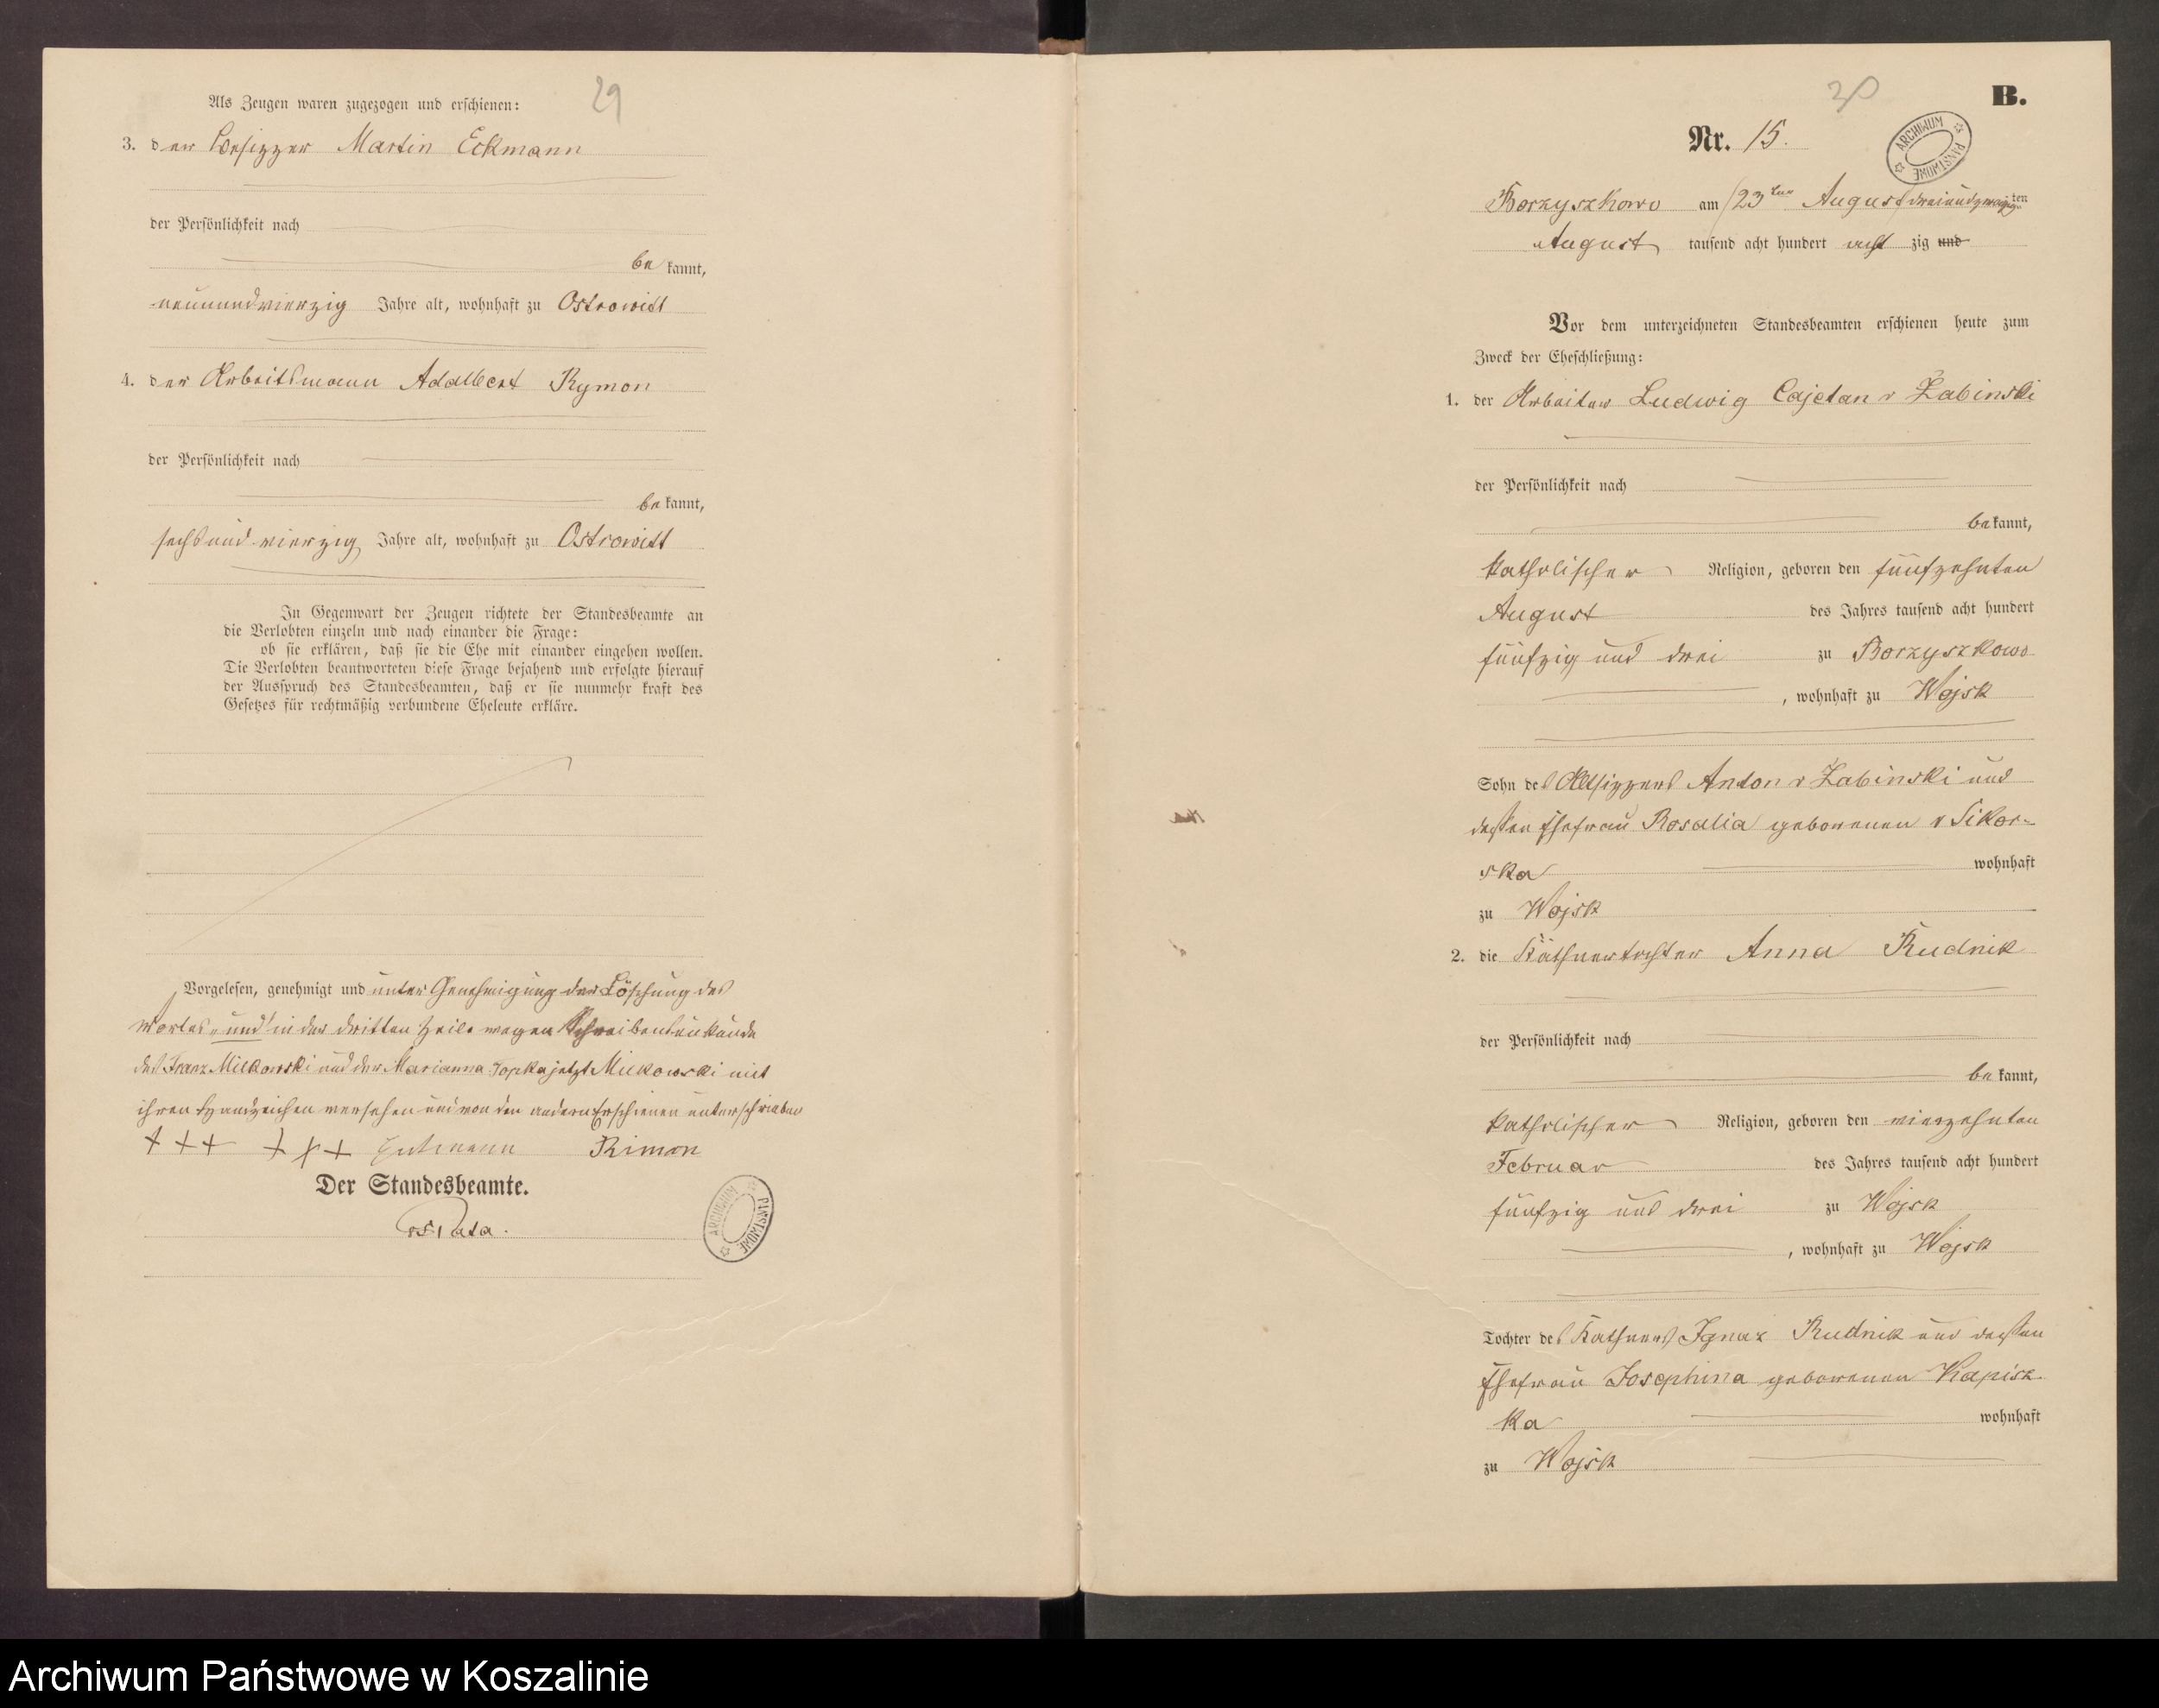 29
Als Zeugen waren zugezogen und erschienen:
3. der Besizzer Martin Eckmann
der Persönlichkeit nach
be kannt,
neunundvierzig Jahre alt, wohnhaft zu Ostrowitt
4. der Arbeitsmann Adalbert Rymon
der Persönlichkeit nach
be kannt,
sechsundvierzig Jahre alt, wohnhaft zu Ostrowitt
In Gegenwart der Zeugen richtete der Standesbeamte an
die Verlobten einzeln und nach einander die Frage:
ob sie erklären, daß sie die Ehe mit einander eingehen wollen.
Die Verlobten beantworteten diese Frage bejahend und erfolgte hierauf
der Ausspruch des Standesbeamten, daß er sie nunmehr kraft des
Gesetzes für rechtmäßig verbundene Eheleute erkläre.
Vorgelesen, genehmigt und unter Genehmigung der Löschung des
Wortes „und" in der dritten Zeile wegen Schreibensunkunde
des Franz Milkowski und der Marianna jetzt Milkowski mit
ihren Handzeichen versehen und von den andern Erschienen unterschrieben
+++ +++ Rimon
Der Standesbeamte.
ARCHIWUM PAŃSTWOWE
30
B.
Nr. 15.
ARCHIWUM PAŃSTWOWE
Borzyszkowo am /23ten August/ dreiundzwanzigsten
August tausend acht hundert acht zig und
Vor dem unterzeichneten Standesbeamten erschienen heute zum
Zweck der Eheschließung:
1. der Arbeiter Ludwig Cajetan v Żabinski
der Persönlichkeit nach
be kannt,
katholischer Religion, geboren den fünfzehnten
August des Jahres tausend acht hundert
fünfzig und drei zu Borzyszkowo
, wohnhaft zu Wojsk
Sohn des Altsizzers Anton v Żabinski und
dessen Ehefrau Rosalia geborenen v Sikor-
ska wohnhaft
zu Wojsk
2. die Käthnertochter Anna Rudnik
der Persönlichkeit nach
be kannt,
katholischer Religion, geboren den vierzehnten
Februar des Jahres tausend acht hundert
fünfzig und drei zu Wojsk
, wohnhaft zu Wojsk
Tochter des Käthners Ignaz Rudnik und dessen
Ehefrau Josephina geborenen Kapisz-
ka wohnhaft
zu Wojsk
Archiwum Państwowe w Koszalinie